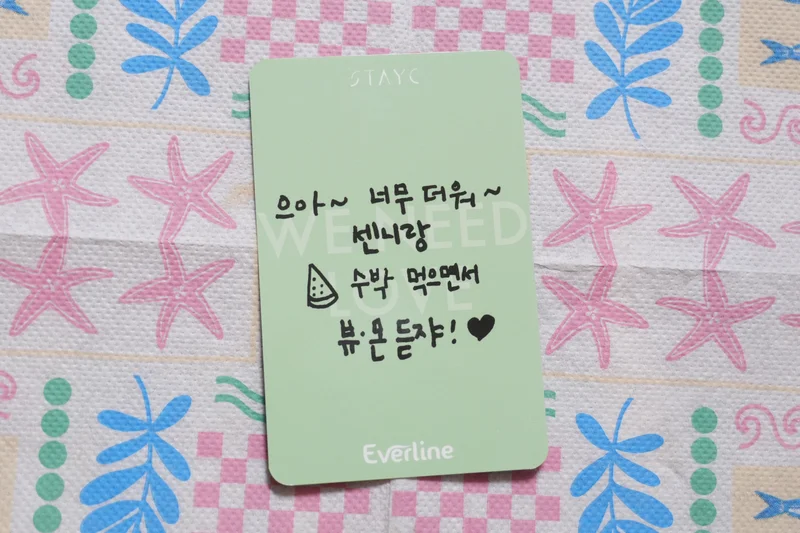 STAYC
으아~ 너무 더워~
센니랑
수박 먹으면서
뷰·몬 듣쟈! ♥
WE NEED
LOVE
Everline